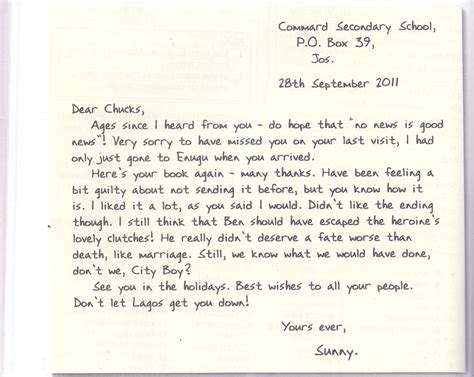 Command Secondary School,
P.O. Box 39,
Jos.
28th September 2011
Dear Chucks,
Ages since I heard from you - do hope that "no news is good
news"! Very sorry to have missed you on your last visit, I had
only just gone to Enugu when you arrived.
Here's your book again - many thanks. Have been feeling a
bit guilty about not sending it before, but you know how it
is. I liked it a lot, as you said I would. Didn't like the ending
though. I still think that Ben should have escaped the heroine's
lovely clutches! He really didn't deserve a fate worse than
death, like marriage. Still, we know what we would have done,
don't we, City Boy?
See you in the holidays. Best wishes to all your people.
Don't let Lagos get you down!
Yours ever,
Sunny.